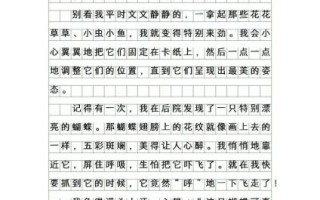 别看我平时文文静静的，一拿起那些花花
草草、小虫小鱼，我就变得特别来劲。我会小
心翼翼地把它们固定在卡纸上，然后一点一点
地调整它们的位置，直到它们呈现出最美的姿
态。
记得有一次，我在后院发现了一只特别漂
亮的蝴蝶。那蝴蝶翅膀上的花纹就像画上去的
一样，五彩斑斓，美得让人心醉。我悄悄地靠
近它，屏住呼吸，生怕把它吓飞了。就在我快
要抓到它的时候，它竟然“呼”地一下飞走了！